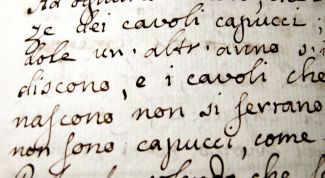 ze dei cavoli capucci ;
dole un' altr' anno s
discono, e i cavoli che
nascono non si serrano
non sono capucci, come